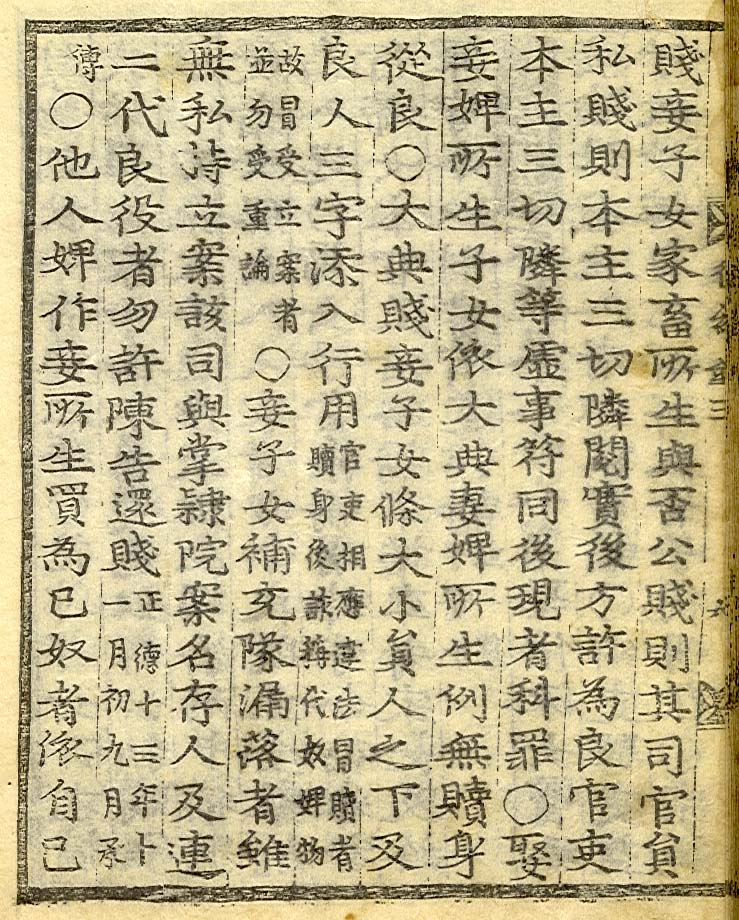 賤妾子女家畜所生與否公賤則其司官員
私賤則本主三切隣閱實後方許為良官吏
本主三切隣等虛事符同後現者科罪○娶
妾婢所生子女依大典妻婢所生例無贖身
從良○大典賤妾子女條大小員人之下及
良人三字添入行用官吏相應違法冒贖者
贖身後謀稱代奴婢物
故冒受立案者
並勿受重論○妾子女補充隊漏落者雖
無私洔立案該司與掌隷院案名存人及連
二代良役者勿許陳告還賤正德十三年十
一月初九月承
傳○他人婢作妾所生買為己奴者依自己